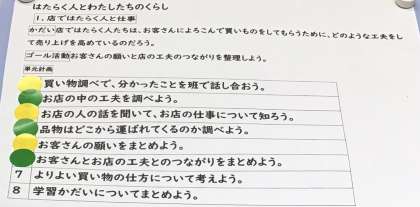 はたらく人とわたしたちのくらし
1．店ではたらく人と仕事
かだい店ではたらく人たちは、お客さんによろこんで買いものをしてもらうために、どのような工夫をし
て売り上げを高めているのだろう。
ゴール活動お客さんの願いと店の工夫のつながりを整理しよう。
単元計画
買い物調べで、分かったことを班で話し合おう。
お店の中の工夫を調べよう。
お店の人の話を聞いて、お店の仕事について知ろう。
品物はどこから運ばれてくるのか調べよう。
お客さんの願いをまとめよう。
お客さんとお店の工夫とのつながりをまとめよう。
7 よりよい買い物の仕方について考えよう。
8 学習かだいについてまとめよう。